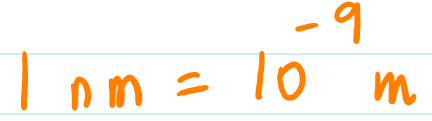 1 nm = 10⁻⁹ m